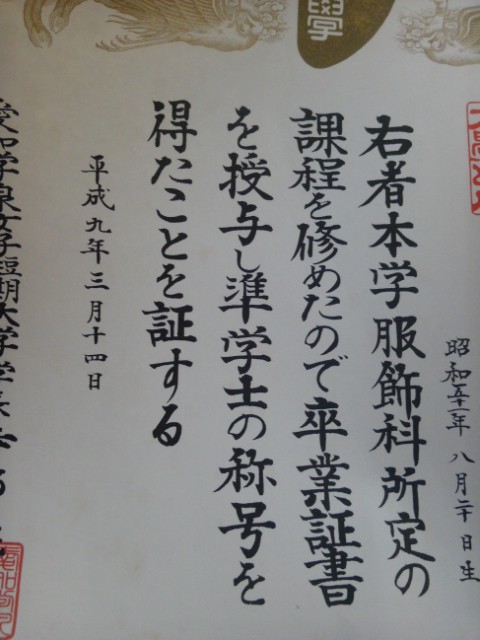 學
昭和五十一年八月二十日生
右者本学服飾科所定の
課程を修めたので卒業証書
を授与し準学士の称号を
得たことを証する
平成九年三月十四日
愛知学泉女子短期大学学長